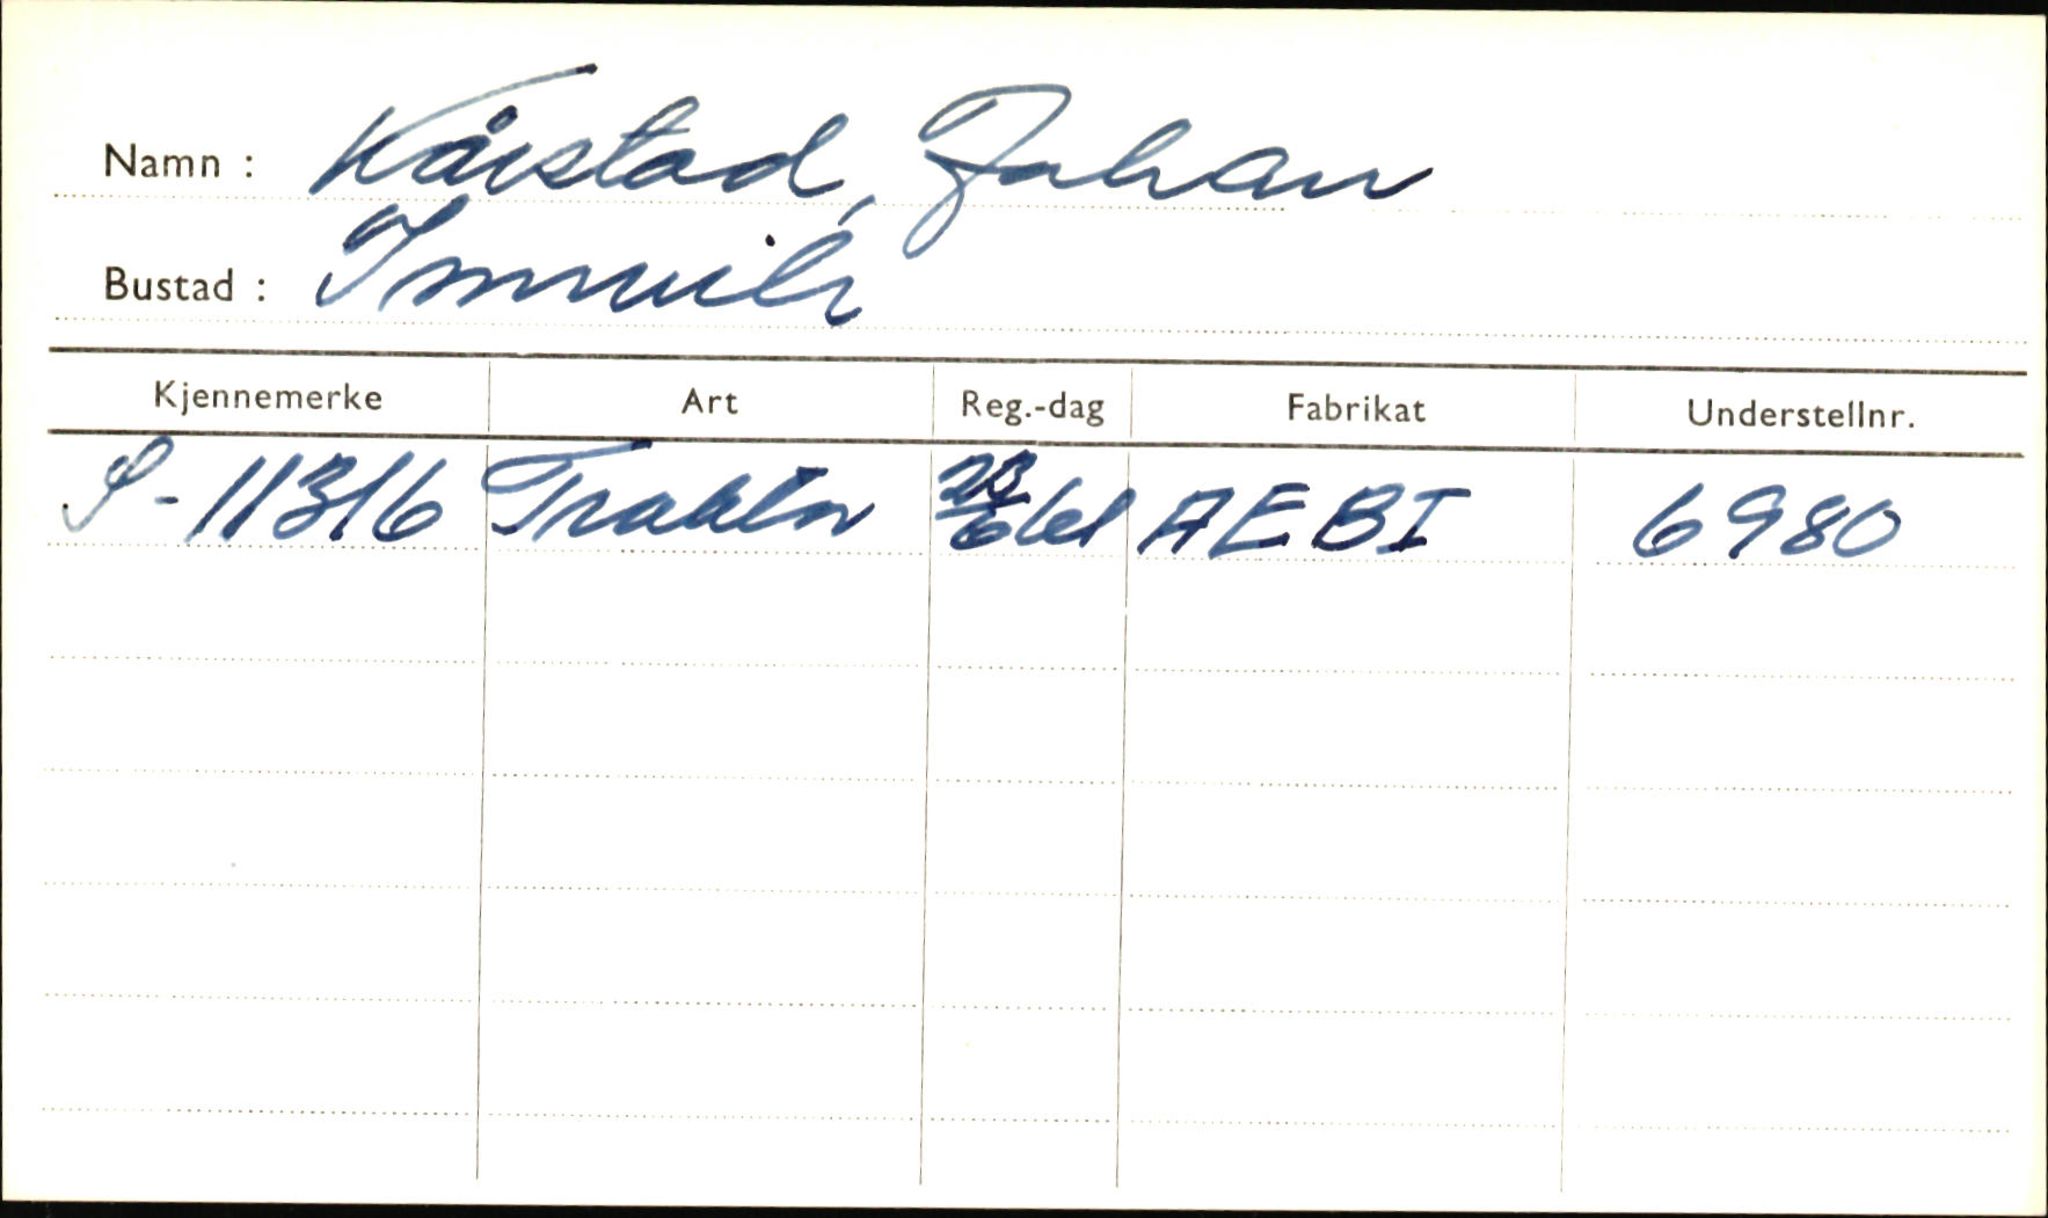 Namn : Kårstad, Johan
Bustad : Innvik
Kjennemerke Art Reg.-dag Fabrikat Understellnr.
S-11316 Traktor 23/6 61 AEBI 6980